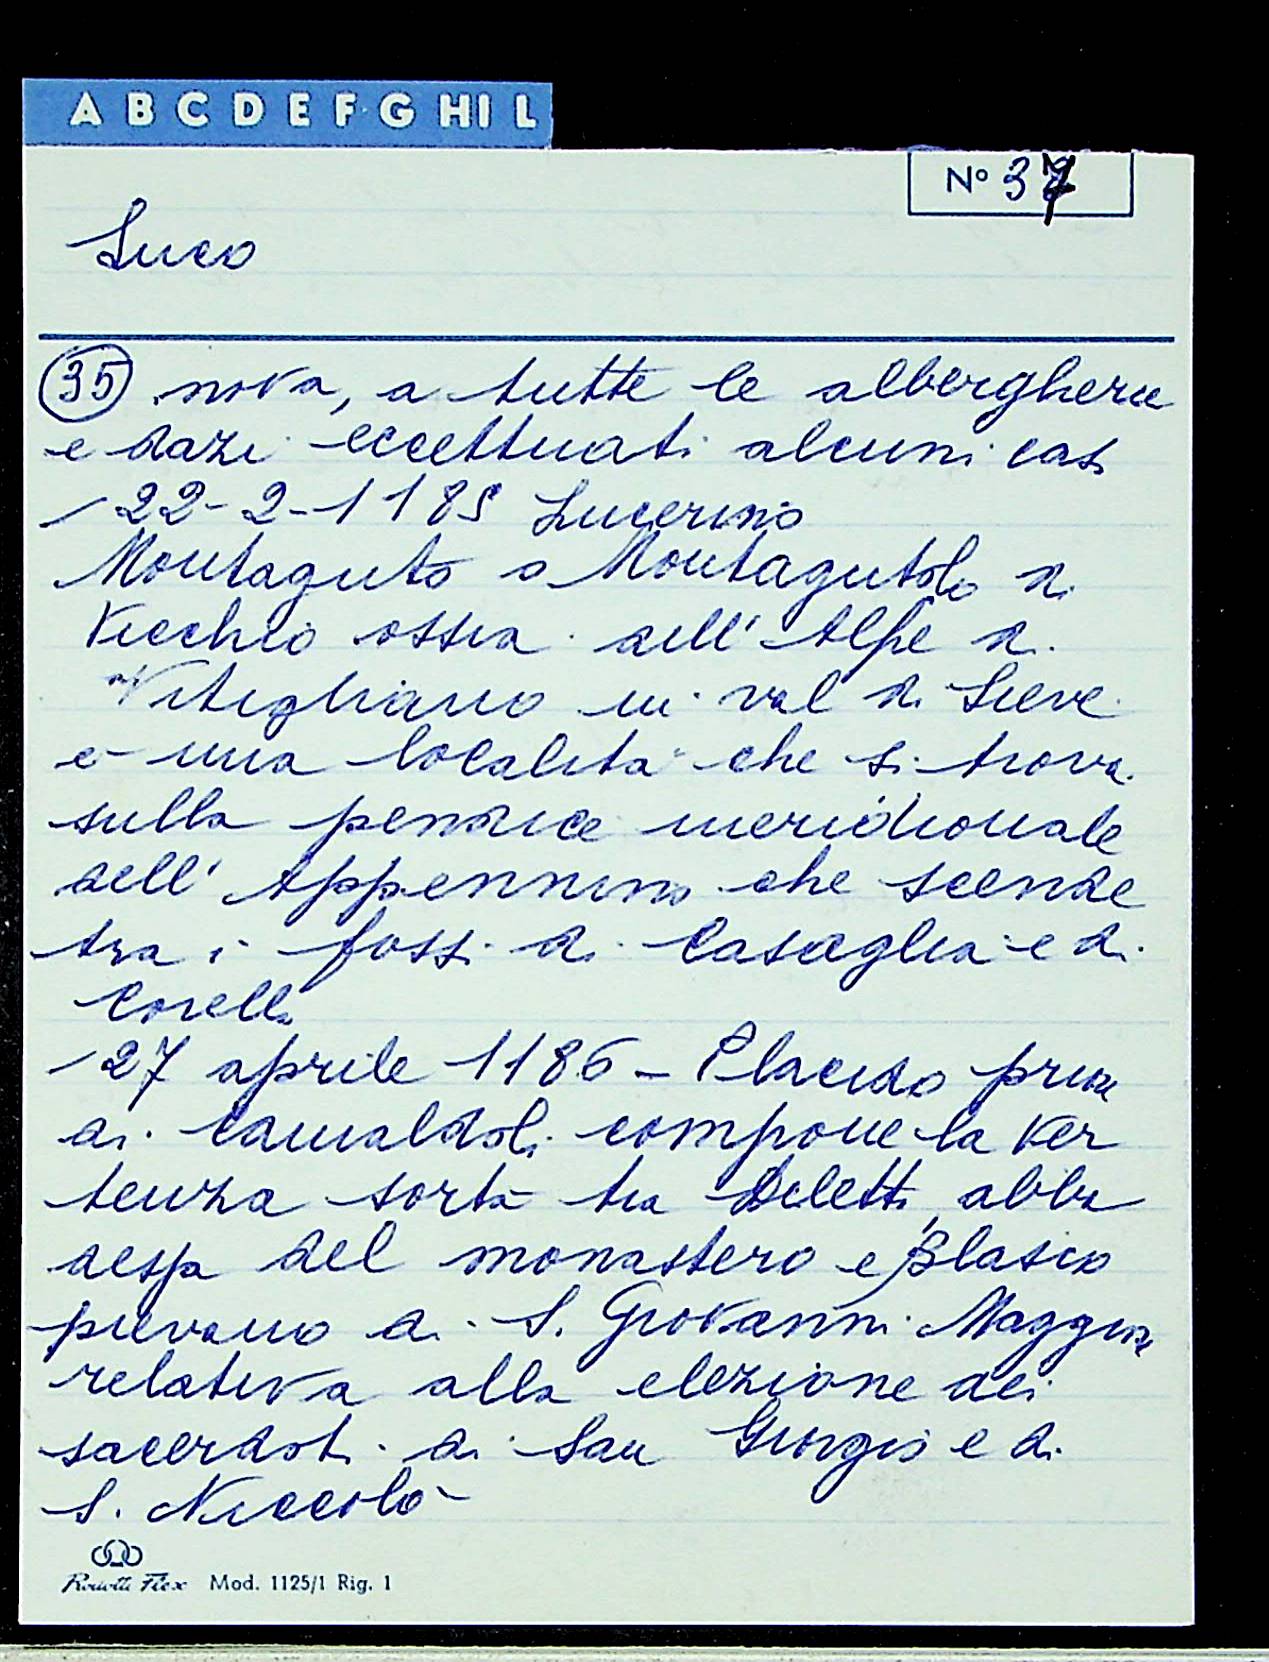 A B C D E F G HI L
N° 37
Luco
35 nova, a tutte le albergherie
e dazi eccettuati alcuni casi
22-2-1185 Lucerino
Montaguto o Montagutolo di
Vecchio ossia dell'Alpe di
Vitigliano in val di Sieve
e una località che si trova
sulla pendice meridionale
dell'Appennino che scende
tra i fossi di Casaglia e di
Corella
27 aprile 1186 - Placido priore
di Camaldoli compone la ver
tenza sorta tra Diletta, abba
dessa del monastero e Blasio
pievano di S. Giovanni Maggiore
relativa alla elezione dei
sacerdoti di San Giorgio e di
S. Niccolò
Mod. 1125/1 Rig. 1